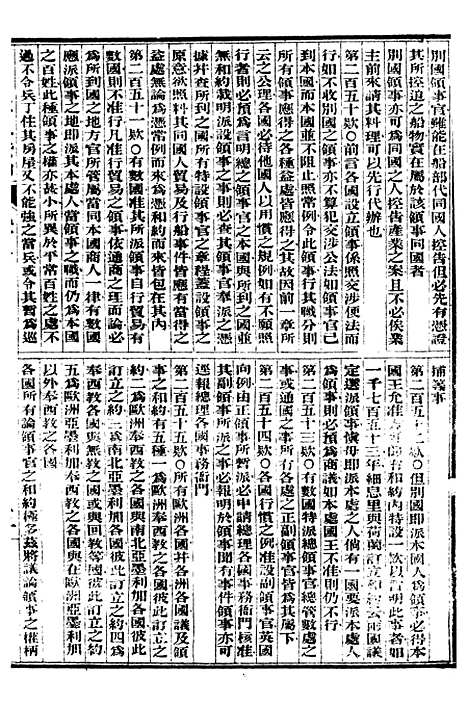 別國領事官雖能在船部代同國人控告但必先有憑證
其所控追之船物實在屬於該領事國
別國領事亦可爲同國之人控告產業之案且不必俟業
主前來請其料理可以先行代辦也
第二百五十款〇前言各國設立領事係照交涉便法而
行如不准別國之領事亦不算犯交涉公法如領事官已
到本國而本國並不阻止照常例令此領事行其職分則
所有領事應得之各種益處皆應得之其故因前一章所
云之公理各國必待他國人以用價之規例如有不願照
行者則必預爲言明總之領事官之本國與所到之國若
無和約載明派設領事之事則必查其領事官奉派之憑
據幷查所到之國所有待設領事官之章程蓋設領事之
原意欲照料其同國人貿易及行船事件皆應有當得之
益處無論爲循例而來爲憑和約而來皆包在其內
第二百五十一款〇有數國准其所派領事自行貿易有
數國則不准行凡准行貿易之領事依通商之理而論必
爲所到國之地方官所管屬當同本國商人一律有數國
應派領事之地即派其本處人當領事之職而仍爲本國
之百姓此種領事之事亦故小所異於平常百姓之處不
過不令兵丁住其房屋又不能強之當兵或令其暫爲巡
捕義事
第二百五十二款〇但別國即派本國人爲領事必得本
國王允准方可
一千七百五十三年細息里與荷蘭訂立和約云兩國議
定選派領事愼毋即派本處之人倘有一國要派本處人
爲領事則必預先爲商議如本處國王准則仍不行
第二百五十三款〇有數國特派總領事官總管數處之
事或通國之事則所有各處之正副領事官皆爲其屬下
第二百五十四款〇各國行慣之例准設副領事官英國
向例由正領事所暫派必申請總理各國事務衙門核准
其副領事所派之事必報明於領事聞有事件領事亦可
逕報總理各國事務衙門
第二百五十五款〇所有歐洲各國幷各洲各國議及領
事之和約有五種一爲歐洲奉西教之各國彼此訂立之
約二爲歐洲奉西教之各國與南北亞墨利加各國彼此
訂立之約三爲南北亞墨利加各國彼此訂立之約四爲
奉西教之各國與無教之各國或回教之國彼此訂立之約
五爲歐洲亞墨利加奉西教之各國與在歐洲亞墨利加
以外奉西教之各國
各國所有論領事官之和約極多茲將議論領事之權柄